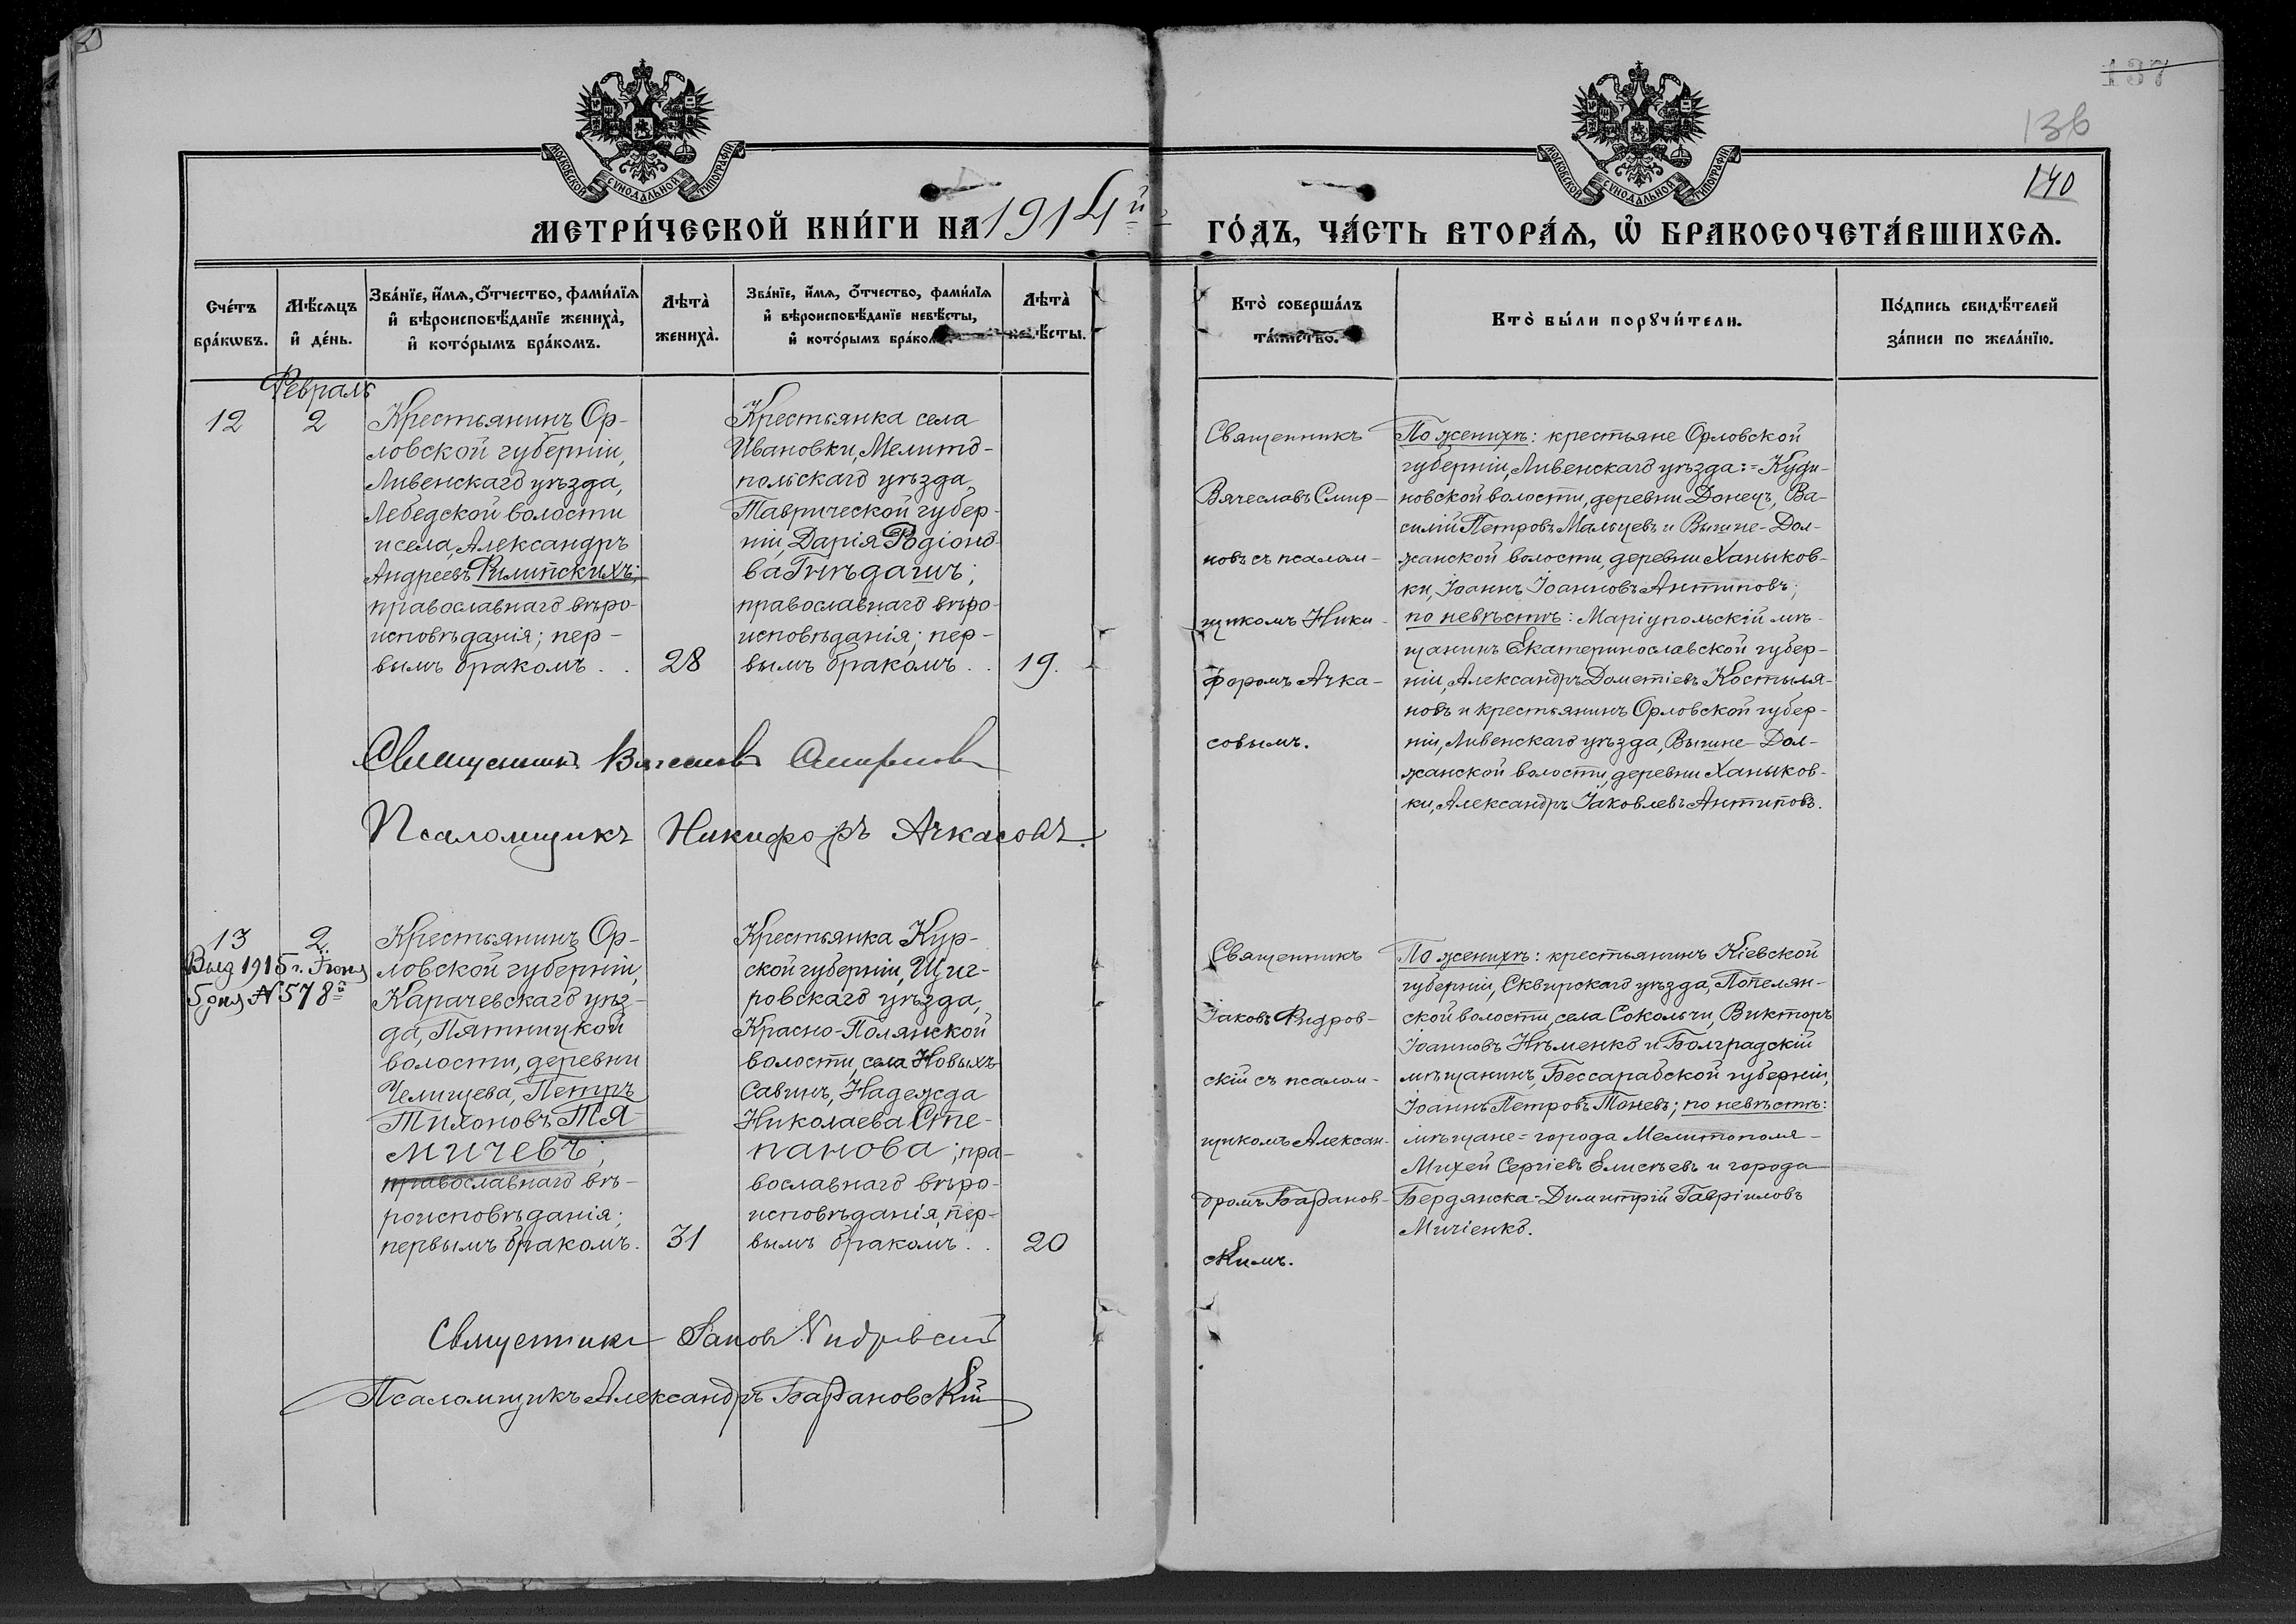 137
136
140
МОСКОВСКОЙ СѴНОДАЛЬНОЙ ТИПОГРАФІИ
МОСКОВСКОЙ СѴНОДАЛЬНОЙ ТИПОГРАФІИ
МЕТРИ́ЧЕСКОЙ КНИ́ГИ НА 1914й
ГО́ДЪ, ЧА́СТЬ ВТОРА́Ѧ, Ѽ БРАКОСОЧЕТА́ВШИХСѦ.
Сче́тъ
бра́кωвъ.
Мѣ́сѧцъ
и҆ де́нь.
Зва́нїе, и҆́мѧ, ѻ҆́тчество, фами́лїѧ
и҆ вѣроисповѣ́данїе жениха̀,
и҆ кото́рымъ бра́комъ.
Лѣта̀
жениха̀.
Зва́нїе, и҆́мѧ, ѻ҆́тчество, фами́лїѧ
и҆ вѣроисповѣ́данїе невѣ́сты,
и҆ кото́рымъ бра́ком
Лѣта̀
невѣ́сты.
Кто̀ соверша́лъ
та́инство.
Кто̀ бы́ли порꙋчи́тели.
По́дпись свидѣ́телей
за́писи по жела́нїю.
Февраль
12
2
Крестьянинъ Ор-
ловской губерніи,
Ливенскаго уѣзда,
Лебедской волости
и села, Александръ
Андреевъ Филипскихъ;
православнаго вѣро-
исповѣданія; пер-
вымъ бракомъ . .
28
Крестьянка села
Ивановки, Мелито-
польскаго уѣзда,
Таврической губер-
ніи, Дарія Родіоно-
ва Гнѣдашъ;
православнаго вѣро-
исповѣданія; пер-
вымъ бракомъ . .
19.
Священникъ
Вячеславъ Смир-
новъ съ псалом-
щикомъ Ники-
форомъ Ачка-
совымъ.
По женихѣ: крестьяне Орловской
губерніи, Ливенскаго уѣзда:= Куди-
новской волости, деревни Донецъ, Ва-
силій Петровъ Мальцевъ и Вышне-Дол-
жанской волости, деревни Ханыков-
ки, Іоаннъ Іоанновъ Антиповъ;
по невѣстѣ: Маріупольскій мѣ-
щанинъ Екатеринославской губер-
ніи, Александръ Дометіевъ Костыля-
новъ и крестьянинъ Орловской губер-
ніи, Ливенскаго уѣзда, Вышне-Дол-
жанской волости, деревни Ханыков-
ки, Александръ Іаковлевъ Антиповъ.
Священникъ Вячеславъ Смирновъ
Псаломщикъ Никифоръ Ачкасовъ.
13
2.
Выд 1915 г. Іюня
5 дня № 578й
Крестьянинъ Ор-
ловской губерніи,
Карачевскаго уѣз-
да, Пятницкой
волости, деревни
Челищева, Петръ
Тихоновъ ТЯ-
МИЧЕВЪ;
православнаго вѣ-
роисповѣданія;
первымъ бракомъ.
31
Крестьянка Кур-
ской губерніи, Щиг-
ровскаго уѣзда,
Красно-Полянской
волости, села Новыхъ
Савинъ, Надежда
Николаева Сте-
панова; пра-
вославнаго вѣро-
исповѣданія, пер-
вымъ бракомъ . .
20
Священникъ
Іаковъ
скій съ псалом-
щикомъ Алексан-
дромъ Барановс-
кимъ.
По женихѣ: крестьянинъ Кіевской
губерніи, Сквирскаго уѣзда, Попелян-
ской волости, села Сокольчи, Викторъ
Іоанновъ Нѣменко и Болградскій
мѣщанинъ, Бессарабской губерніи,
Іоаннъ Петровъ Тоневъ; по невѣстѣ:
мѣщане= города Мелитополя-
Михей Сергіевъ Елисѣевъ и города
Бердянска- Димитрій Гавріиловъ
Мичіенко.
Священникъ Іаковъ
Псаломщикъ Александръ Барановскій